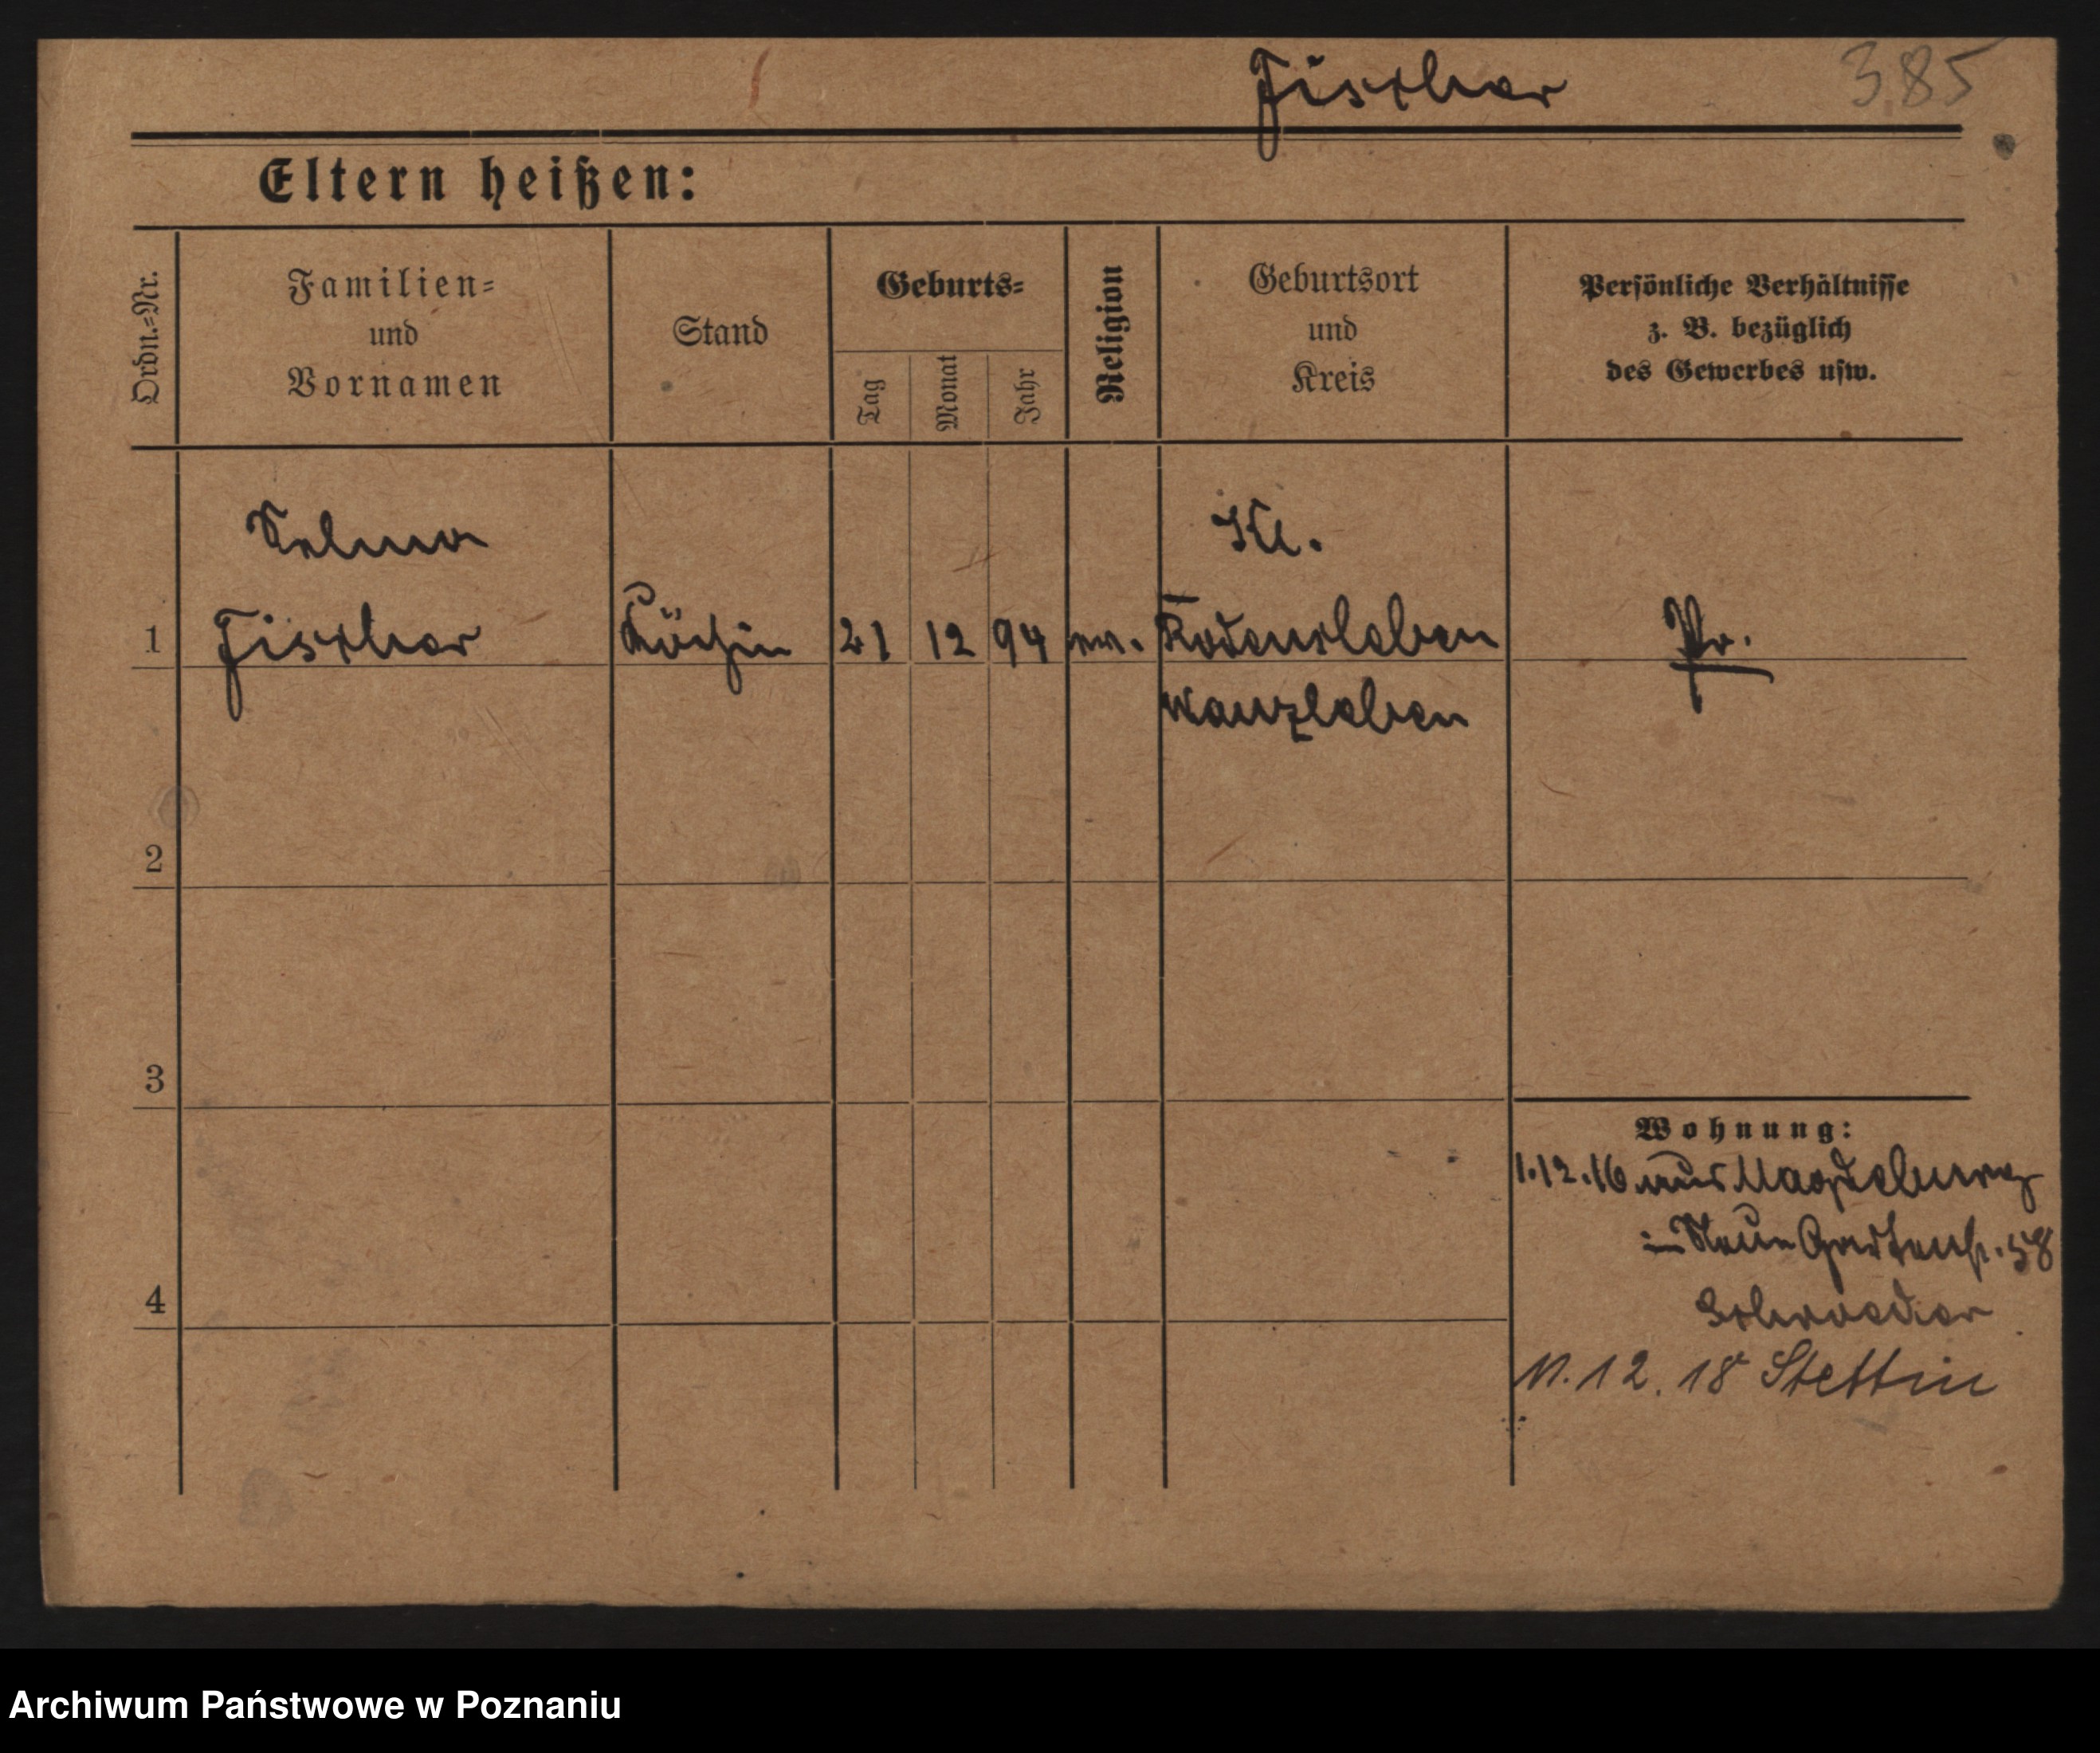 Fischer 385
Eltern heißen:
Ordn.=Nr.
Familien=
und
Vornamen
Stand
Geburts=
Tag
Monat
Jahr
Religion
Geburtsort
und
Kreis
Persönliche Verhältnisse
z. B. bezüglich
des Gewerbes usw.
Selma
Kl.
1 Fischer Köchin 21 12 94 ev. Rodensleben Pr.
Wanzleben
2
3
Wohnung:
1.12.16 aus Magdeburg
Neue Gartenstr. 58
4
Schroeder
11.12.18 Stettin
Archiwum Państwowe w Poznaniu